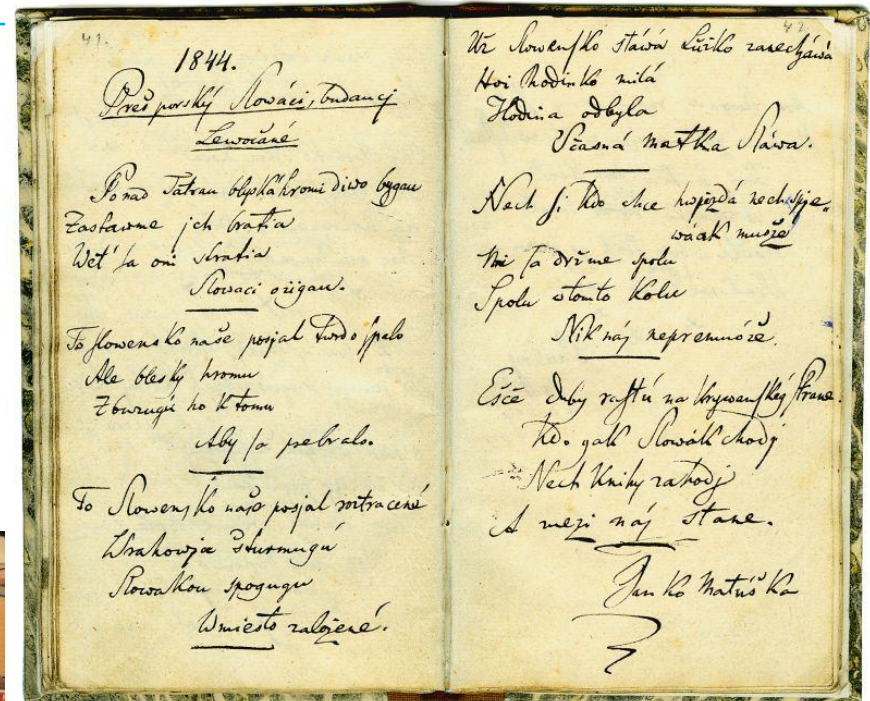 41.
1844.
Prešporský Slowáci, budaucj
Lewočané
Ponad Tatrau blyská hromi diwo bygau
Zastawme jch bratia
Wet' sa oni stratia
Slowaci ožigau.
To slowensko naše posjal twrdo spalo
Ale blesky hromu
Zburzugú ho k tomu
Aby sa prebralo.
To Slowensko naše posjal roztracené
Wrahowja šturmugú
Slowakou spogugu
Wmiesto založené.
42.
Už Slowensko stáwá Lúško zanecháwá
Hoi rodinko milá
Hodina odbyla
Včasná matka Sláwa.
Nech si kdo chce hwjezdá nech spje„
wáak muože
Mi sa držme spolu
Spolu wtomto kolu
Nik náj nepremuože.
Ešče duby rastú na krywanskég strane.
kdo gak Slowák chodj
Nech knihy zahodj
A mezi náj stane.
Janko Matúška